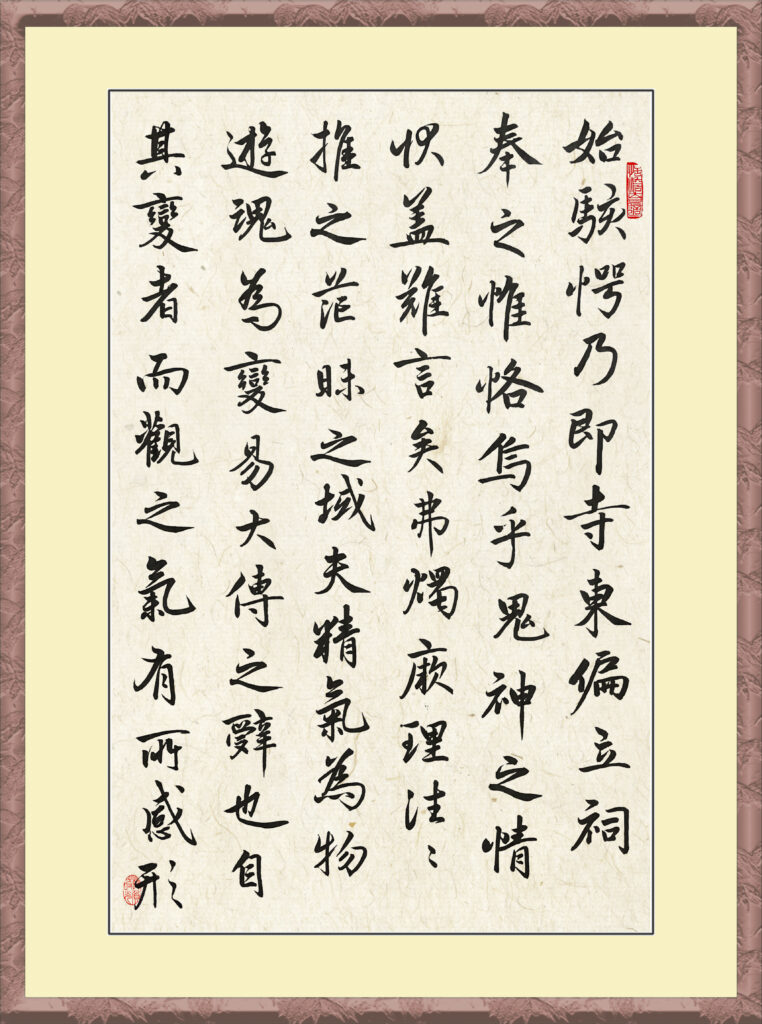 始駭愕乃即寺東偏立祠
奉之惟恪烏乎鬼神之情
怳蓋難言矣弗燭厥理往〻
推之茫昧之域夫精氣為物
遊魂為變易大傳之辭也自
其變者而觀之氣有所感形